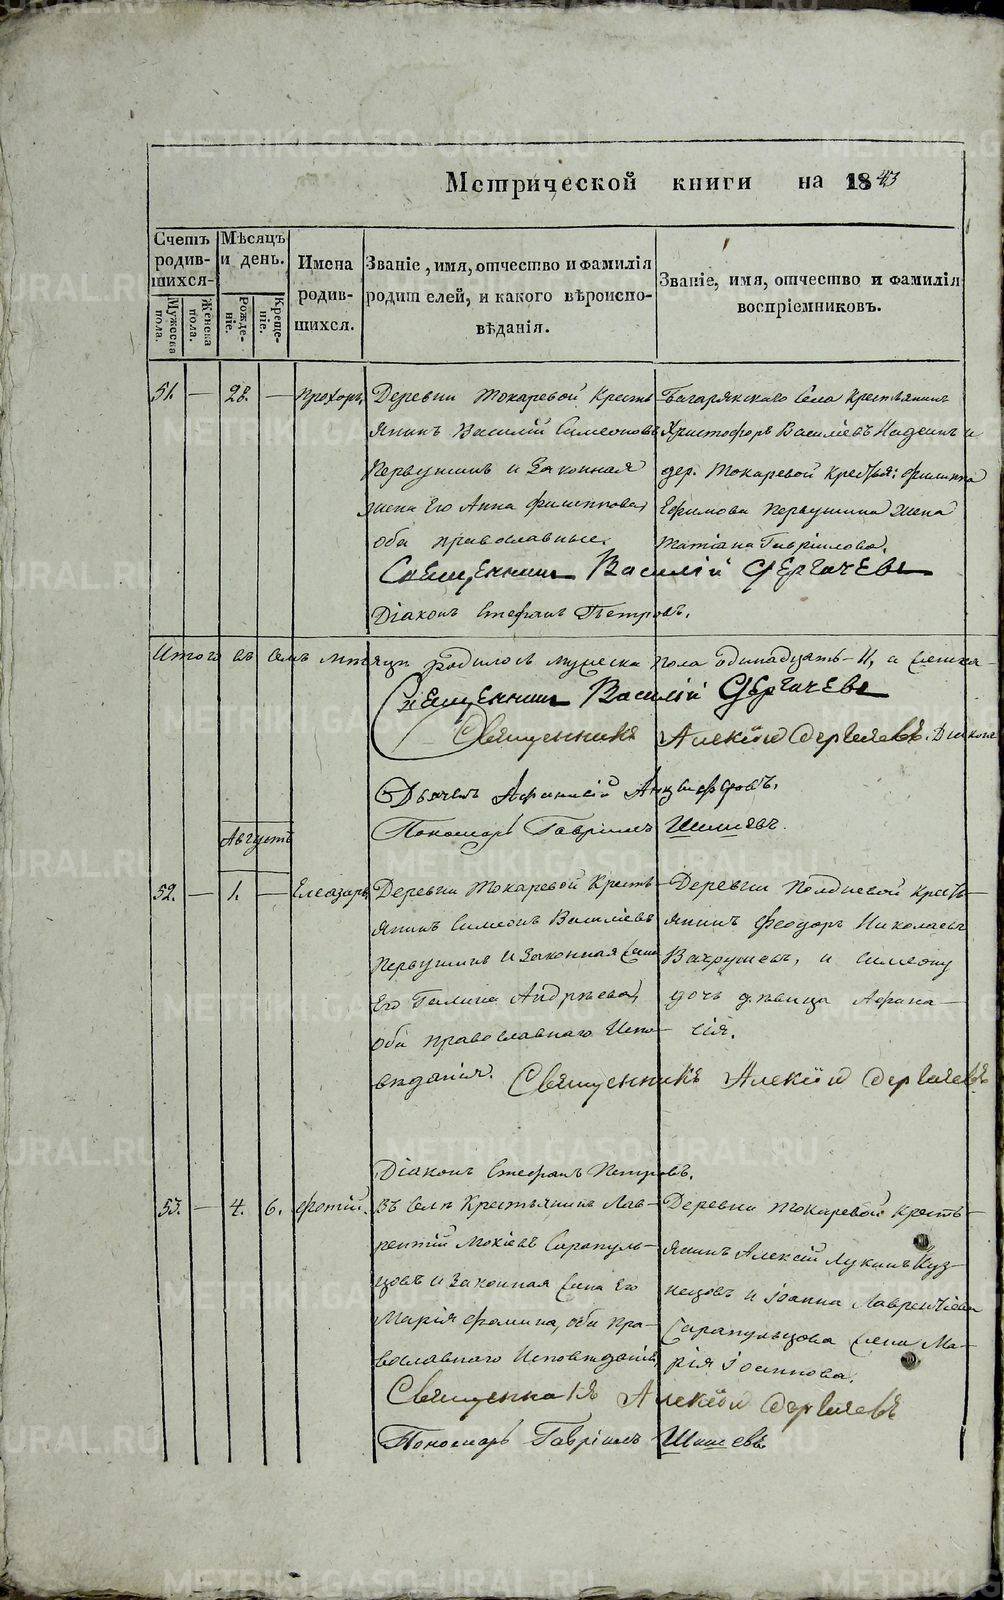 Метрической книги на 1843
Счетъ родившихся
Мужеска пола.
Женска пола.
Мѣсяцъ и день.
Рожденіе.
Крещеніе.
Имена родившихся.
Званіе, имя, отчество и фамилія родителей, и какого вѣроисповѣданія.
Званіе, имя, отчество и фамилія воспріемниковъ.
51. — 28. — Прохоръ.
Деревни Токаревой Кресть
янинъ Василій Симеоновъ
Первушинъ и Законная
жена Его Анна Филиппова,
оба православные.
Багарякскаго Села Крестьянинъ
Христофоръ Василіевъ и
дер. Токаревой Филиппа
Ефимова Первушина жена
Татіана Гавріилова.
Священникъ Василій Сергачевъ
Діаконъ Стефанъ Петровъ.
Итого въ семъ мѣсяцѣ родилось мужеска пола одинадцать — 11, а женска —
Священникъ Василій Сергачевъ
Священникъ Алексій Дергачевъ. Діаконъ
Дьячекъ Афанасій Анцыферовъ.
Пономарь Гавріилъ Шишевъ.
Августъ
52. — 1. — Елеазаръ.
Деревни Токаревой Кресть-
янинъ Симеонъ Василіевъ
Первушинъ и Законная жена
Его Галина Андрѣева,
оба православнаго Испо-
вѣданія.
Деревни Полдневой Кресть-
янинъ Феодоръ Николаевъ
Вахрушевъ, и Симеону
дочь дѣвица Афана-
сія.
Священникъ Алексій Дергачевъ
Діаконъ Стефанъ Петровъ.
53. — 4. 6. Фотій.
Въ Селѣ Крестьянинъ Лав-
рентій Мокіевъ Сарапуль-
цовъ и Законная жена Его
Марія Фомина, оба пра-
вославнаго Исповѣданія.
Деревни Токаревой Кресть-
янинъ Алексій Лукинъ Куз-
нецовъ и Іоанна Лаврентіева
Сарапульцова жена Ма-
рія Іоаннова.
Священникъ Алексій Дергачевъ
Пономарь Гавріилъ Шишевъ
METRIKI.GASO-URAL.RU